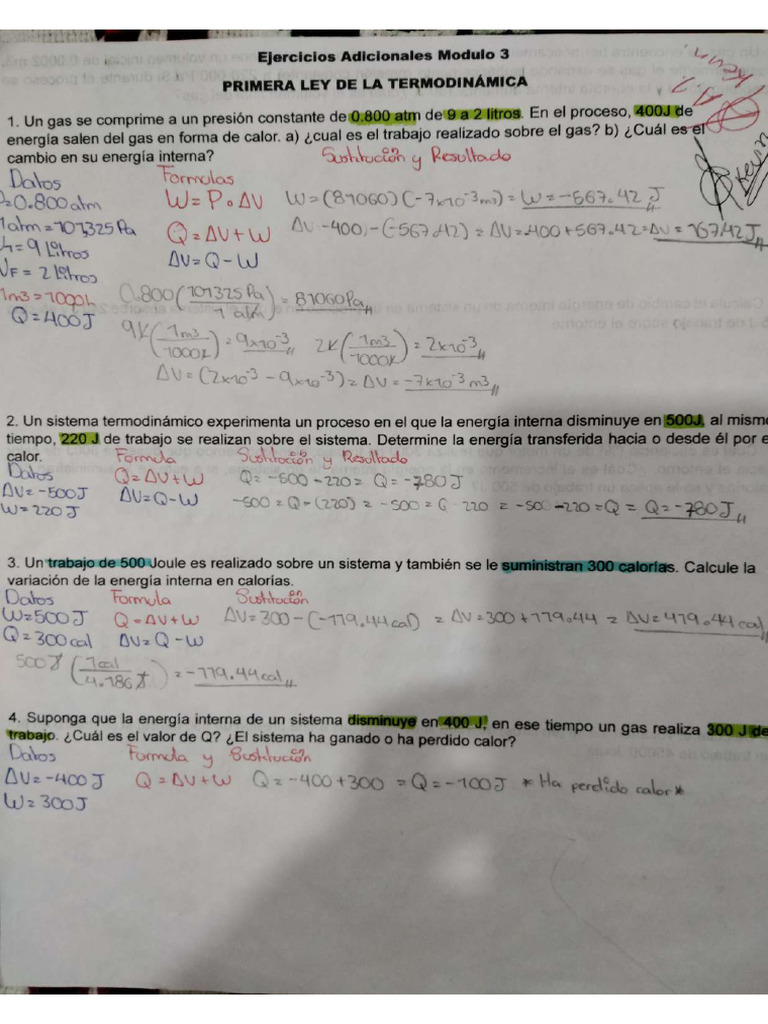 Ejercicios Adicionales Modulo 3
PRIMERA LEY DE LA TERMODINÁMICA
1. Un gas se comprime a un presión constante de 0.800 atm de 9 a 2 litros. En el proceso, 400J de
energía salen del gas en forma de calor. a) ¿cual es el trabajo realizado sobre el gas? b) ¿Cuál es el
cambio en su energía interna?
Sustitución y Resultado
Datos
Formulas
P=0.800atm
W=P.ΔV
W=(81060)(-7x10⁻³m3)=W=-567.42 J
1atm=101,325Pa
Q=ΔU+W
ΔU-400)-(-567.42)=ΔU=-400+567.42=ΔU=167.42J
=9 Litros
ΔU=Q-W
VF=2 Litros
1m3=1000L
0.800(101325Pa/1 atm)=81060Pa
Q=400J
9L(1m3/1000L)=9x10⁻³ 2L(1m3/1000L)=2x10⁻³
ΔV=(2x10⁻³-9x10⁻³)=ΔV=-7x10⁻³m3
2. Un sistema termodinámico experimenta un proceso en el que la energía interna disminuye en 500J, al mismo
tiempo, 220 J de trabajo se realizan sobre el sistema. Determine la energía transferida hacia o desde él por e
calor.
Formula
Sustitución y Resultado
Datos
Q=ΔU+W
Q=-500-220=Q=-780J
ΔU=-500J
ΔU=Q-W
-500=Q-(220)=-500=Q-220=-500-220=Q=Q=-780J
W=220J
3. Un trabajo de 500 Joule es realizado sobre un sistema y también se le suministran 300 calorías. Calcule la
variación de la energía interna en calorías.
Datos
Formula
Sustitución
W=500J
Q=ΔU+W
ΔU=300-(-119.44cal)=ΔU=300+119.44=ΔU=419.44cal
Q=300cal
ΔU=Q-W
500J(1cal/4.186J)=-119.44cal
4. Suponga que la energía interna de un sistema disminuye en 400 J, en ese tiempo un gas realiza 300 J de
trabajo. ¿Cuál es el valor de Q? ¿El sistema ha ganado o ha perdido calor?
Datos
Formula y Sustitución
ΔU=-400J
Q=ΔU+W
Q=-400+300=Q=-100J *Ha perdido calor*
W=300J